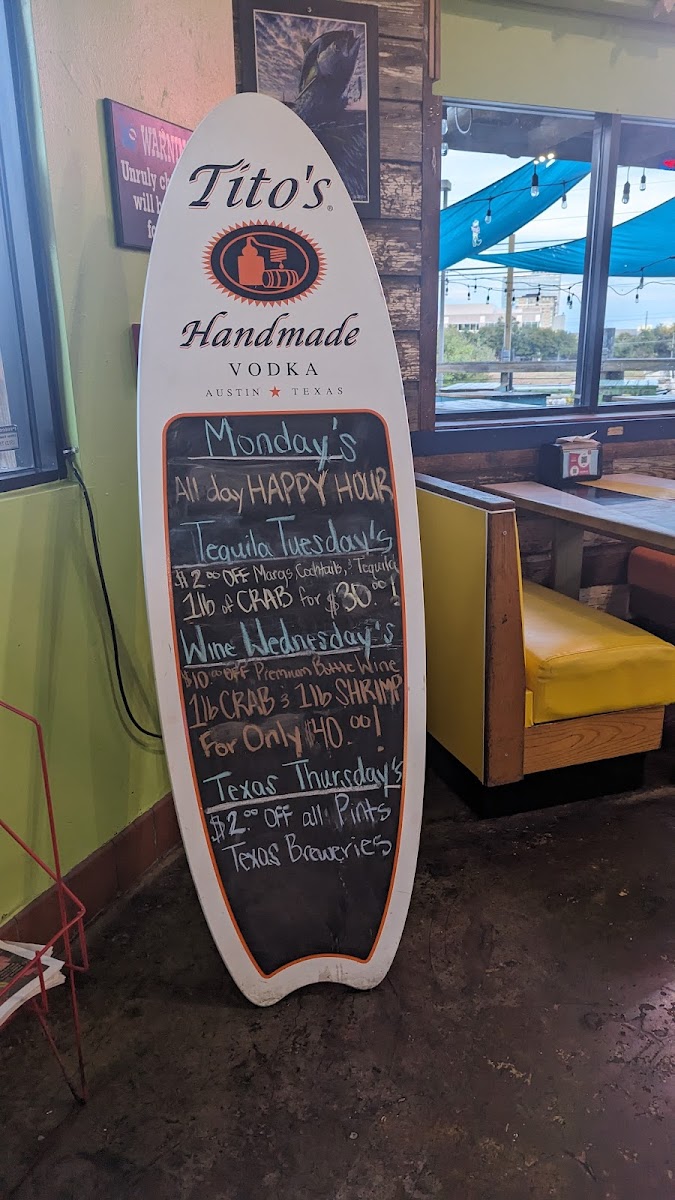 WARNIN
Unruly ch
will b
fo
Tito's®
Handmade
VODKA
AUSTIN ★ TEXAS
Monday's
All day HAPPY HOUR
Tequila Tuesday's
$2.00 OFF Margs, Cocktails, & Tequila
1lb of CRAB for $30.00!
Wine Wednesday's
$10.00 OFF Premium Bottle Wine
1lb CRAB & 1lb SHRIMP
For Only $40.00!
Texas Thursday's
$2.00 OFF all Pints
Texas Breweries